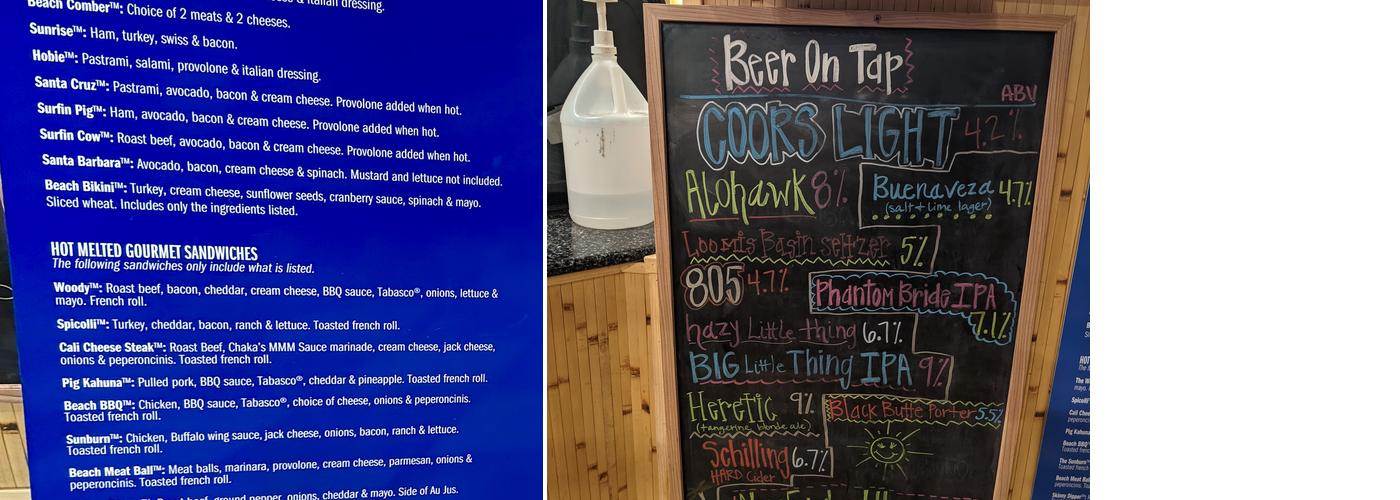 & italian dressing.
Beach Comber™: Choice of 2 meats & 2 cheeses.
Sunrise™: Ham, turkey, swiss & bacon.
Hobie™: Pastrami, salami, provolone & italian dressing.
Santa Cruz™: Pastrami, avocado, bacon & cream cheese. Provolone added when hot.
Surfin Pig™: Ham, avocado, bacon & cream cheese. Provolone added when hot.
Surfin Cow™: Roast beef, avocado, bacon & cream cheese. Provolone added when hot.
Santa Barbara™: Avocado, bacon, cream cheese & spinach. Mustard and lettuce not included.
Beach Bikini™: Turkey, cream cheese, sunflower seeds, cranberry sauce, spinach & mayo.
Sliced wheat. Includes only the ingredients listed.
HOT MELTED GOURMET SANDWICHES
The following sandwiches only include what is listed.
Woody™: Roast beef, bacon, cheddar, cream cheese, BBQ sauce, Tabasco®, onions, lettuce &
mayo. French roll.
Spicolli™: Turkey, cheddar, bacon, ranch & lettuce. Toasted french roll.
Cali Cheese Steak™: Roast Beef, Chaka's MMM Sauce marinade, cream cheese, jack cheese,
onions & peperoncinis. Toasted french roll.
Pig Kahuna™: Pulled pork, BBQ sauce, Tabasco®, cheddar & pineapple. Toasted french roll.
Beach BBQ™: Chicken, BBQ sauce, Tabasco®, choice of cheese, onions & peperoncinis.
Toasted french roll.
Sunburn™: Chicken, Buffalo wing sauce, jack cheese, onions, bacon, ranch & lettuce.
Toasted french roll.
Beach Meat Ball™: Meat balls, marinara, provolone, cream cheese, parmesan, onions &
peperoncinis. Toasted french roll.
beef, ground pepper, onions, cheddar & mayo. Side of Au Jus.
Beer On Tap
ABV
COORS LIGHT 4.2%
Alohawk 8%
Buenaveza 4.7%
(salt + lime lager)
Loomis Basin seltzer 5%
805 4.7%
Phantom Bride IPA
7.1%
hazy Little thing 6.7%
BIG Little Thing IPA 9%
Heretic 9%
(tangerine blonde ale)
Black Butte Porter 5.5%
Schilling 6.7%
HARD Cider